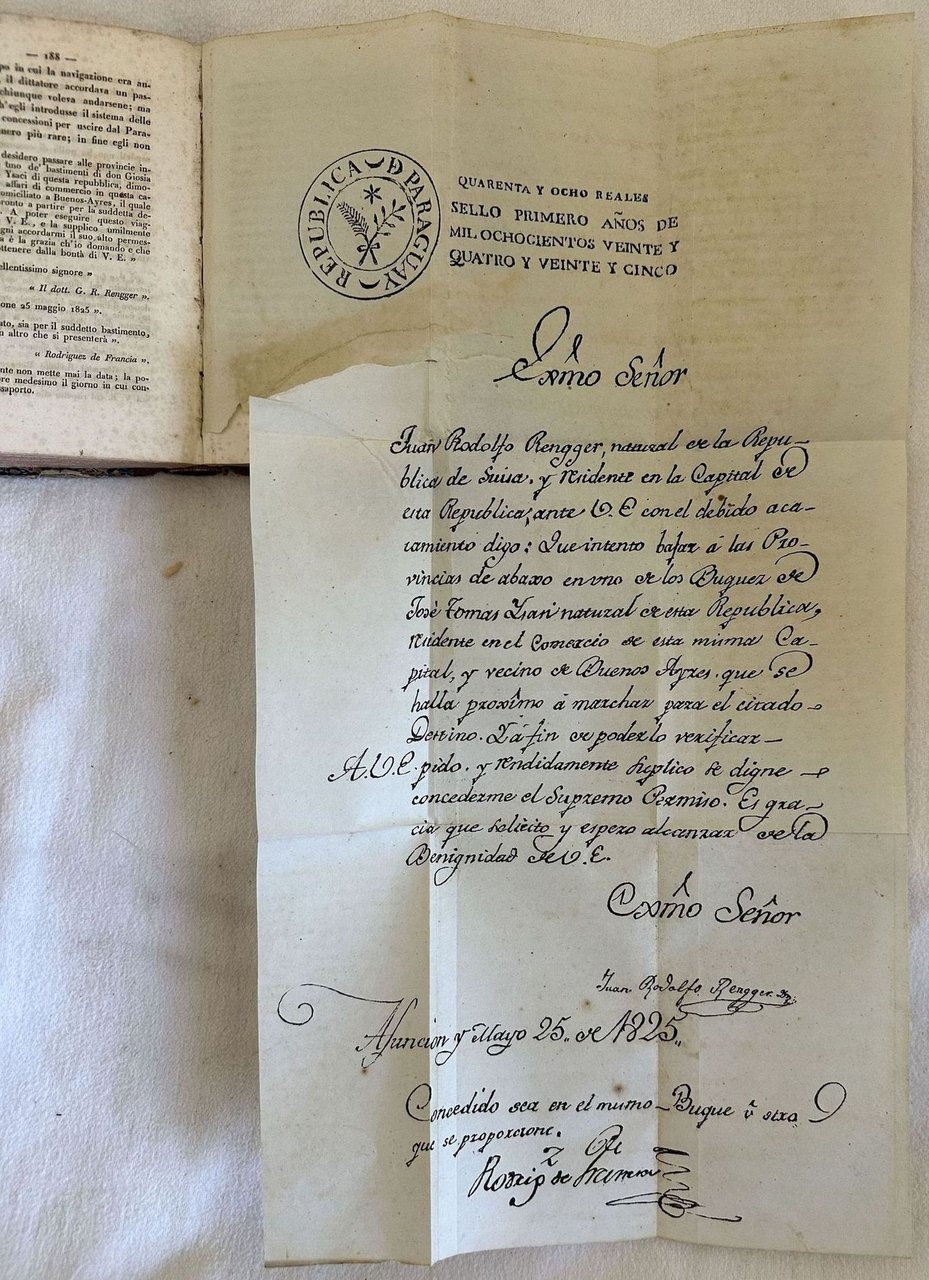 — 188 —
po in cui la navigazione era an-
il dittatore accordava un pas-
chiunque voleva andarsene; ma
h'egli introdusse il sistema delle
concessioni per uscire dal Para-
nero più rare; in fine egli non
desidero passare alle provincie in-
uno de' bastimenti di don Giosia
Ysaci di questa repubblica, dimo-
affari di commercio in questa ca-
omiciliato a Buenos-Ayres, il quale
ronto a partire per la suddetta de-
. A poter eseguire questo viag-
V. E., e la supplico umilmente
egni accordarmi il suo alto permes-
a è la grazia ch'io domando e che
ottenere dalla bontà di V. E. »
ellentissimo signore »
« Il dott. G. R. Rengger ».
one 25 maggio 1825 ».
ato, sia per il suddetto bastimento,
n altro che si presenterà ».
« Rodriguez de Francia ».
nte non mette mai la data; la po-
re medesimo il giorno in cui con-
ssaporto.
REPUBLICA D PARAGUAY
QUARENTA Y OCHO REALES
SELLO PRIMERO AÑOS DE
MIL OCHOCIENTOS VEINTE Y
QUATRO Y VEINTE Y CINCO
Exmo Señor
Juan Rodolfo Rengger, natural de la Repu-
blica de Suisa, y residente en la Capital de
esta Republica, ante V. E con el debido aca-
tamiento digo: Que intento bajar á las Pro-
vincias de abaxo en uno de los Buquez de
José Tomas Ysasi natural de esta Republica,
residente en el Comercio de esta misma Ca-
pital, y vecino de Buenos Ayres. que se
halla proximo á marchar para el citado
Destino. Y á fin de poderlo verificar
A. V. E. pido. y rendidamente suplico se digne
concederme el Supremo Permiso. Es gra-
cia que solicito y espero alcanzar de la
Benignidad de V. E.
Exmo Señor
Juan Rodolfo Rengger
Asuncion y Mayo 25,, de 1825,,
Concedido sea en el mismo Buque û otro
que se proporcione.
Rodrig de Francia